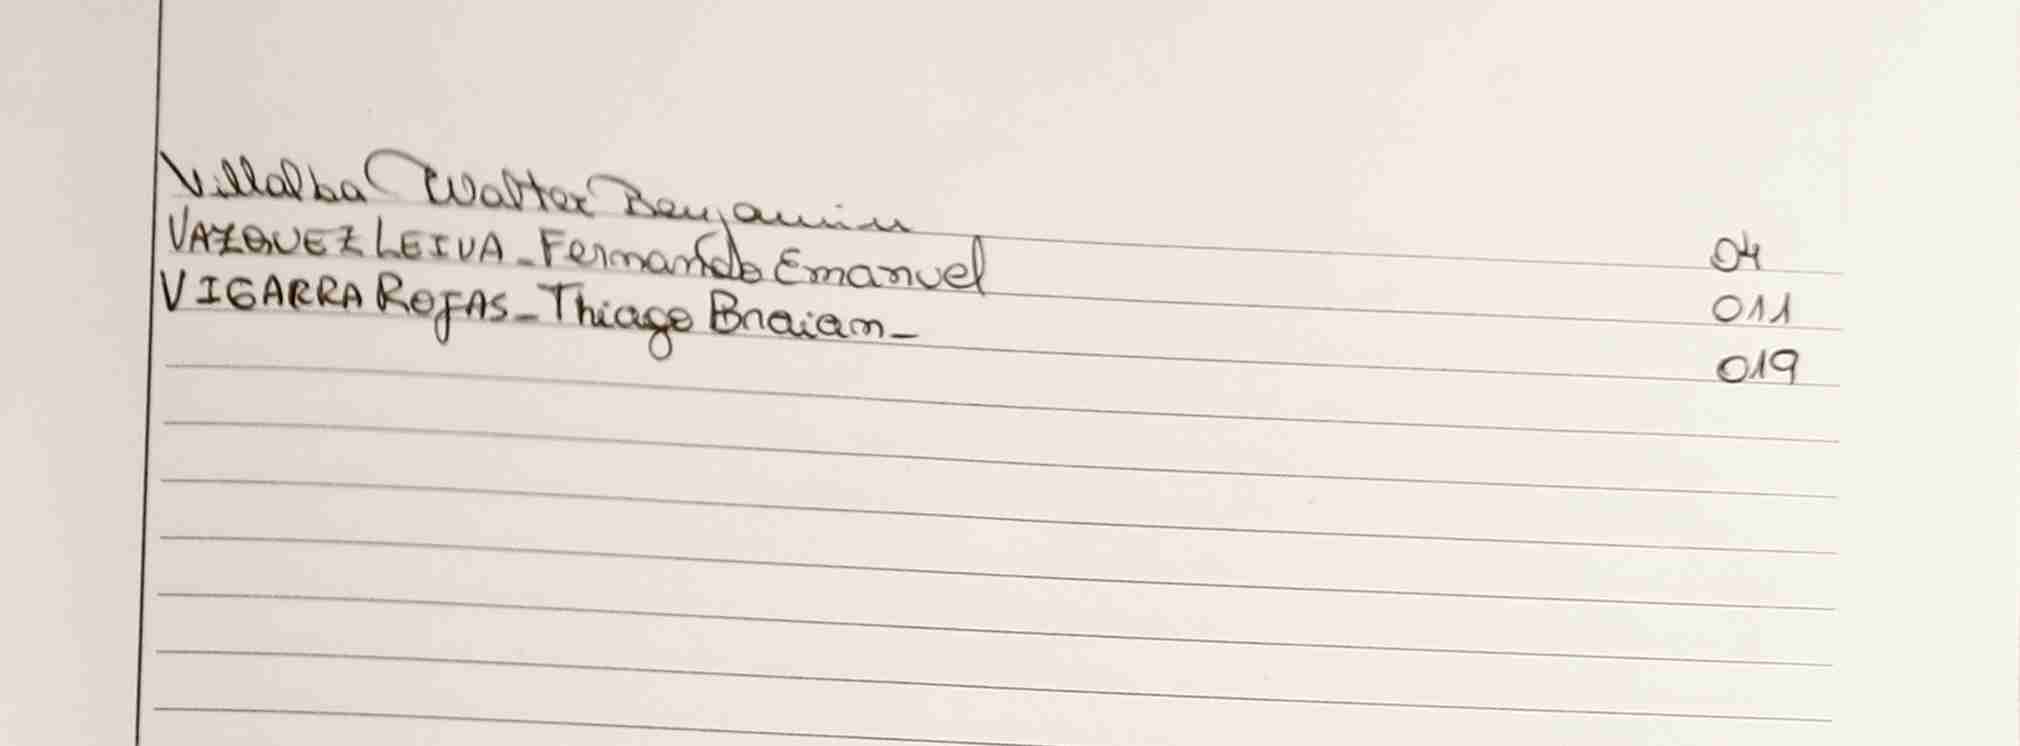 Villalba Walter Benjamin 04
VAZQUEZ LEIVA - Fernando Emanuel 011
VIGARRA ROJAS - Thiago Braian - 019